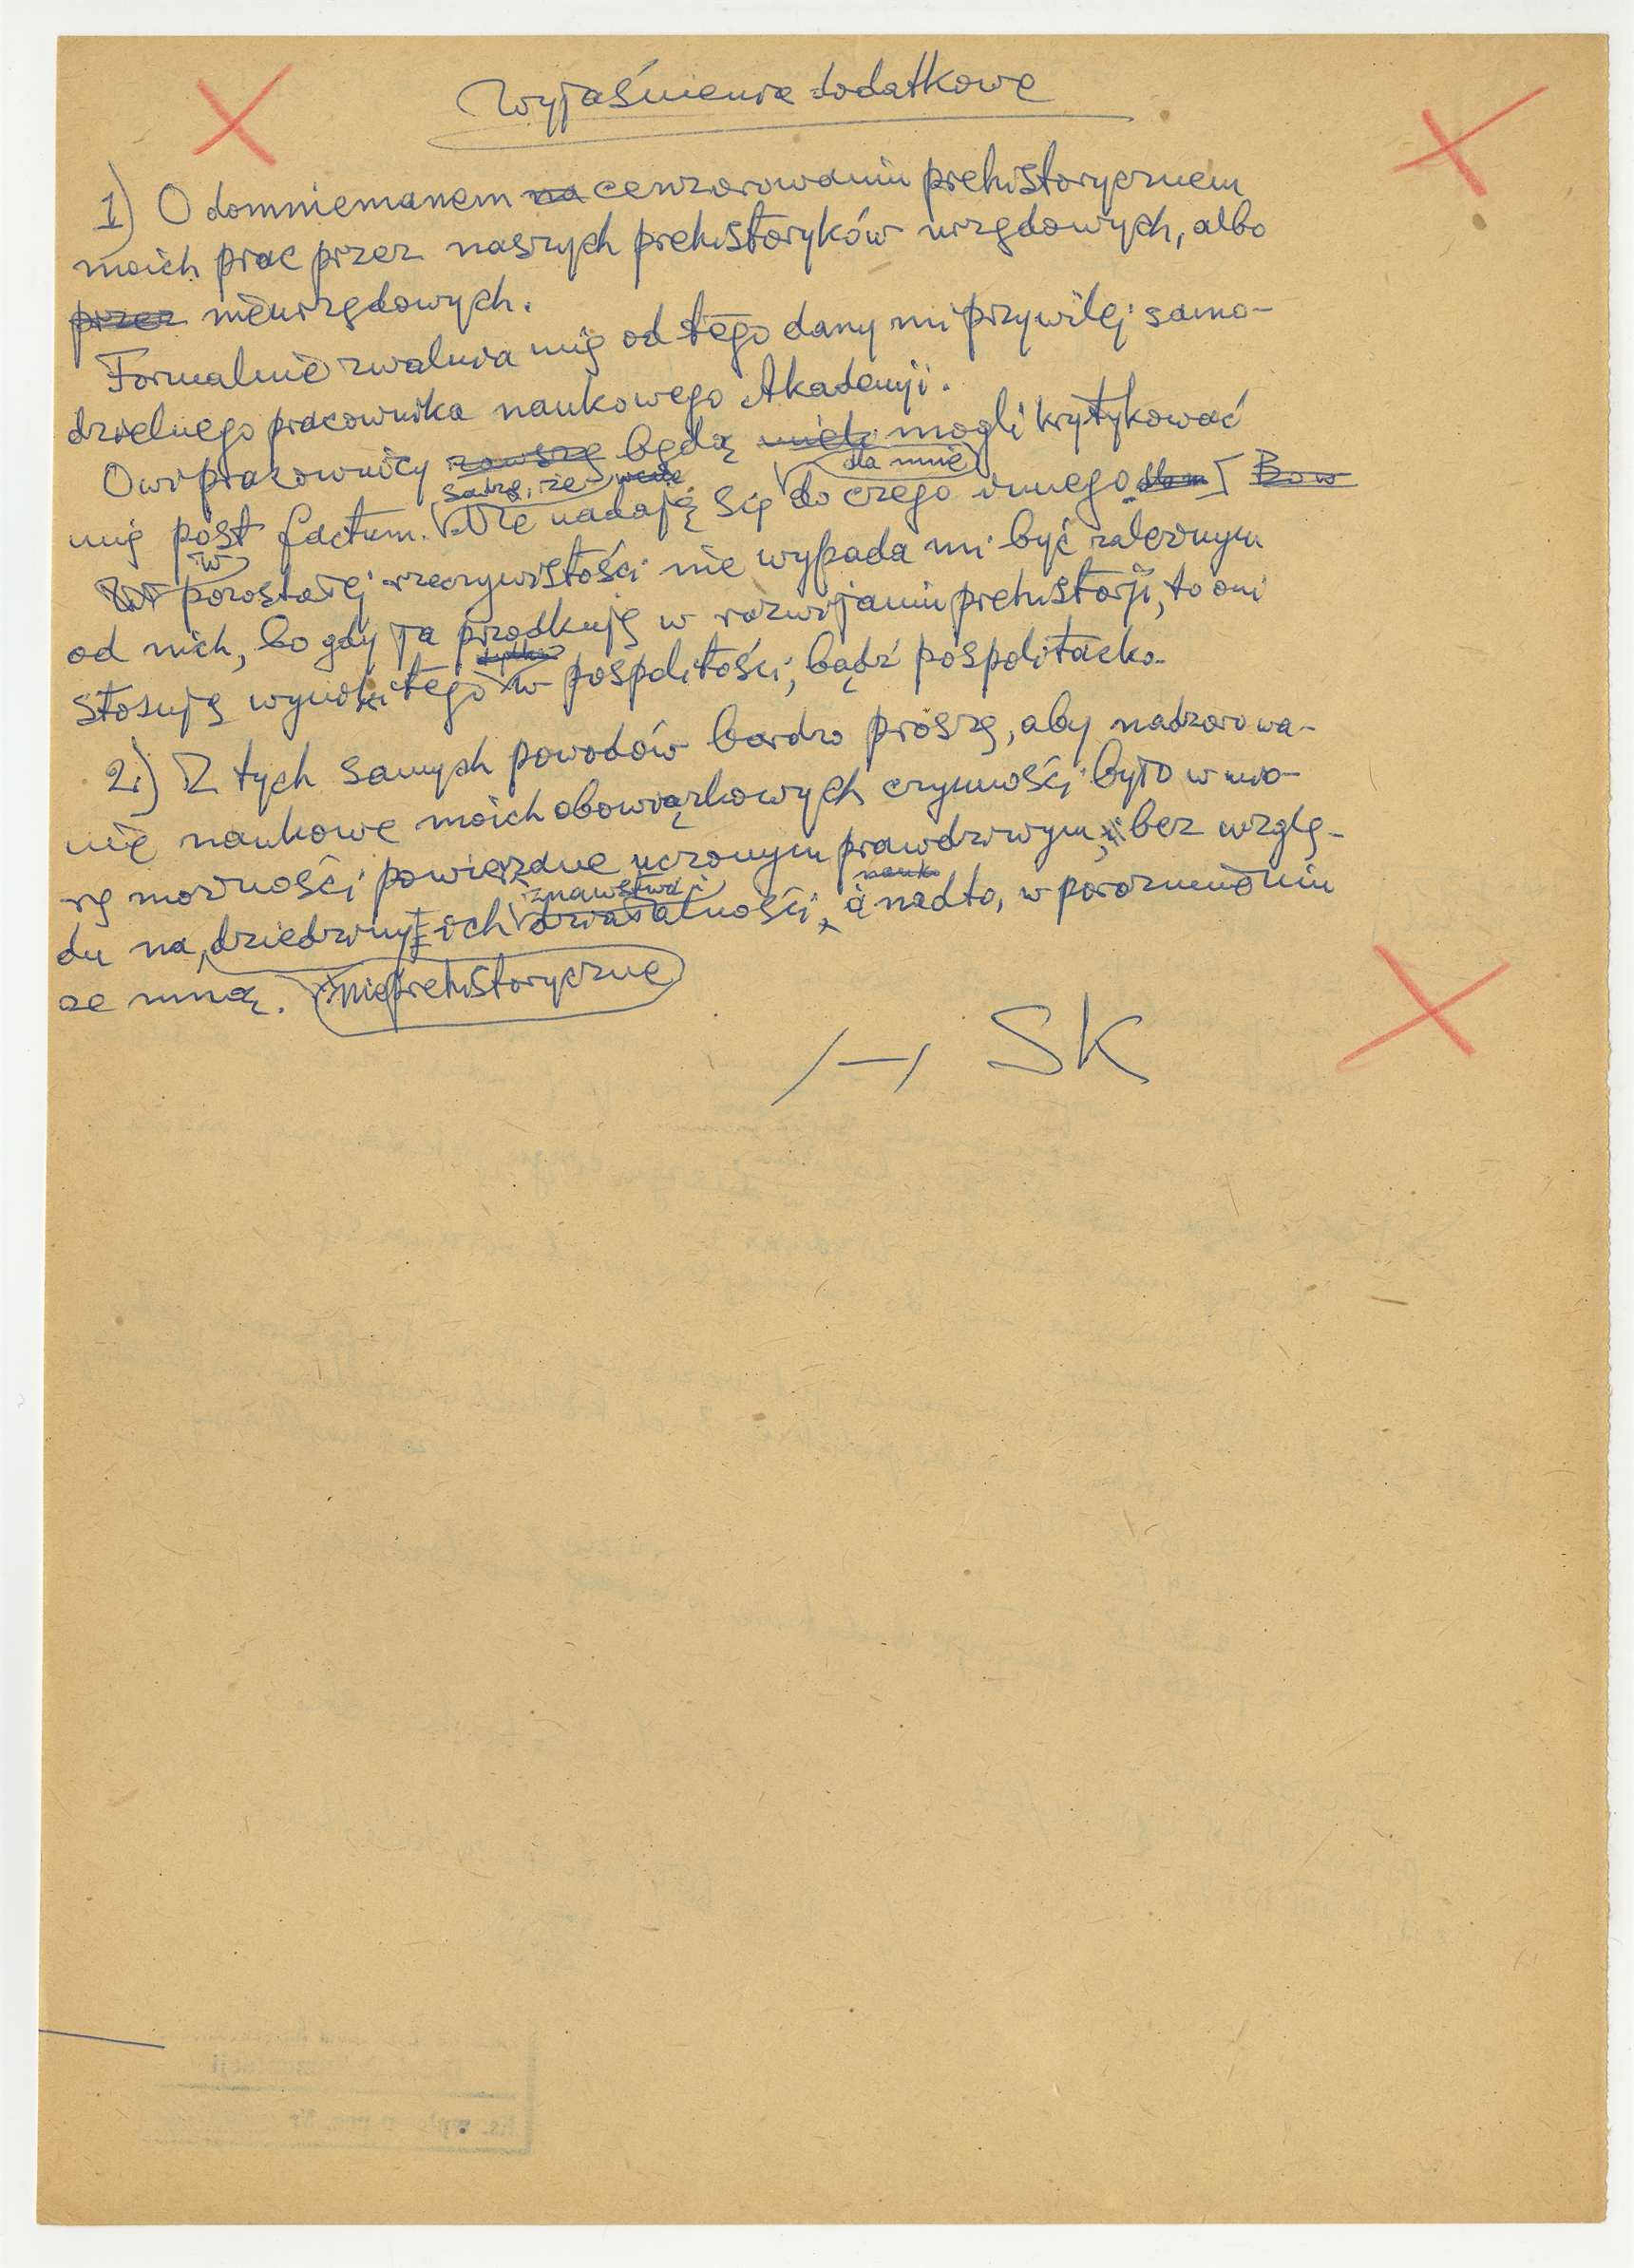 Wyjaśnienie dodatkowe
1) O domniemanem na cenzorowaniu prehistorycznem
moich prac przez naszych prehistoryków urzędowych, albo
przez nieurzędowych.
Formalnie zwalnia mię od tego dany mi przywilej samo-
dzielnego pracownika naukowego Akademji.
Owi pracownicy zawsze będą mieli mogli krytykować
sądzę, że dla mnie
mię post factum. Nie nadają się do czego innego
w
pozostałej rzeczywistości nie wypada mi być zależnym
od nich, bo gdy ja przodkuję w rozwijaniu prehistorji, to oni
tylko
stosują wyniki tego w pospolitości, bądź pospolitacko.
2.) Z tych samych powodów bardzo proszę, aby nadzorowa-
nie naukowe moich obowiązkowych czynności było w mia-
rę możności powierzane uczonym prawdziwym, bez wzglę-
znawstwa nauk
du na dziedziny ich działalności, a nadto, w porozumieniu
ze mną. nieprehistoryczne
/-/ SK